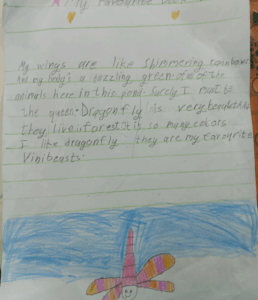 My Favourite
My wings are like Shimmering rainbow
And my body's a dazzling green of all the
animals here In this pond Surely I must be
the queen. Dragonfly is very beautiful
they live in forest. It is so many colors
I like dragonfly they are my favourite
Vinibeasts.